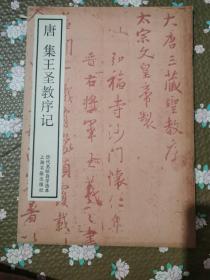 唐 集王圣教序记
历代名帖自学选本
大唐三藏聖教序
太宗文皇帝製
弘福寺沙門懷仁集
晉右將軍王羲之書